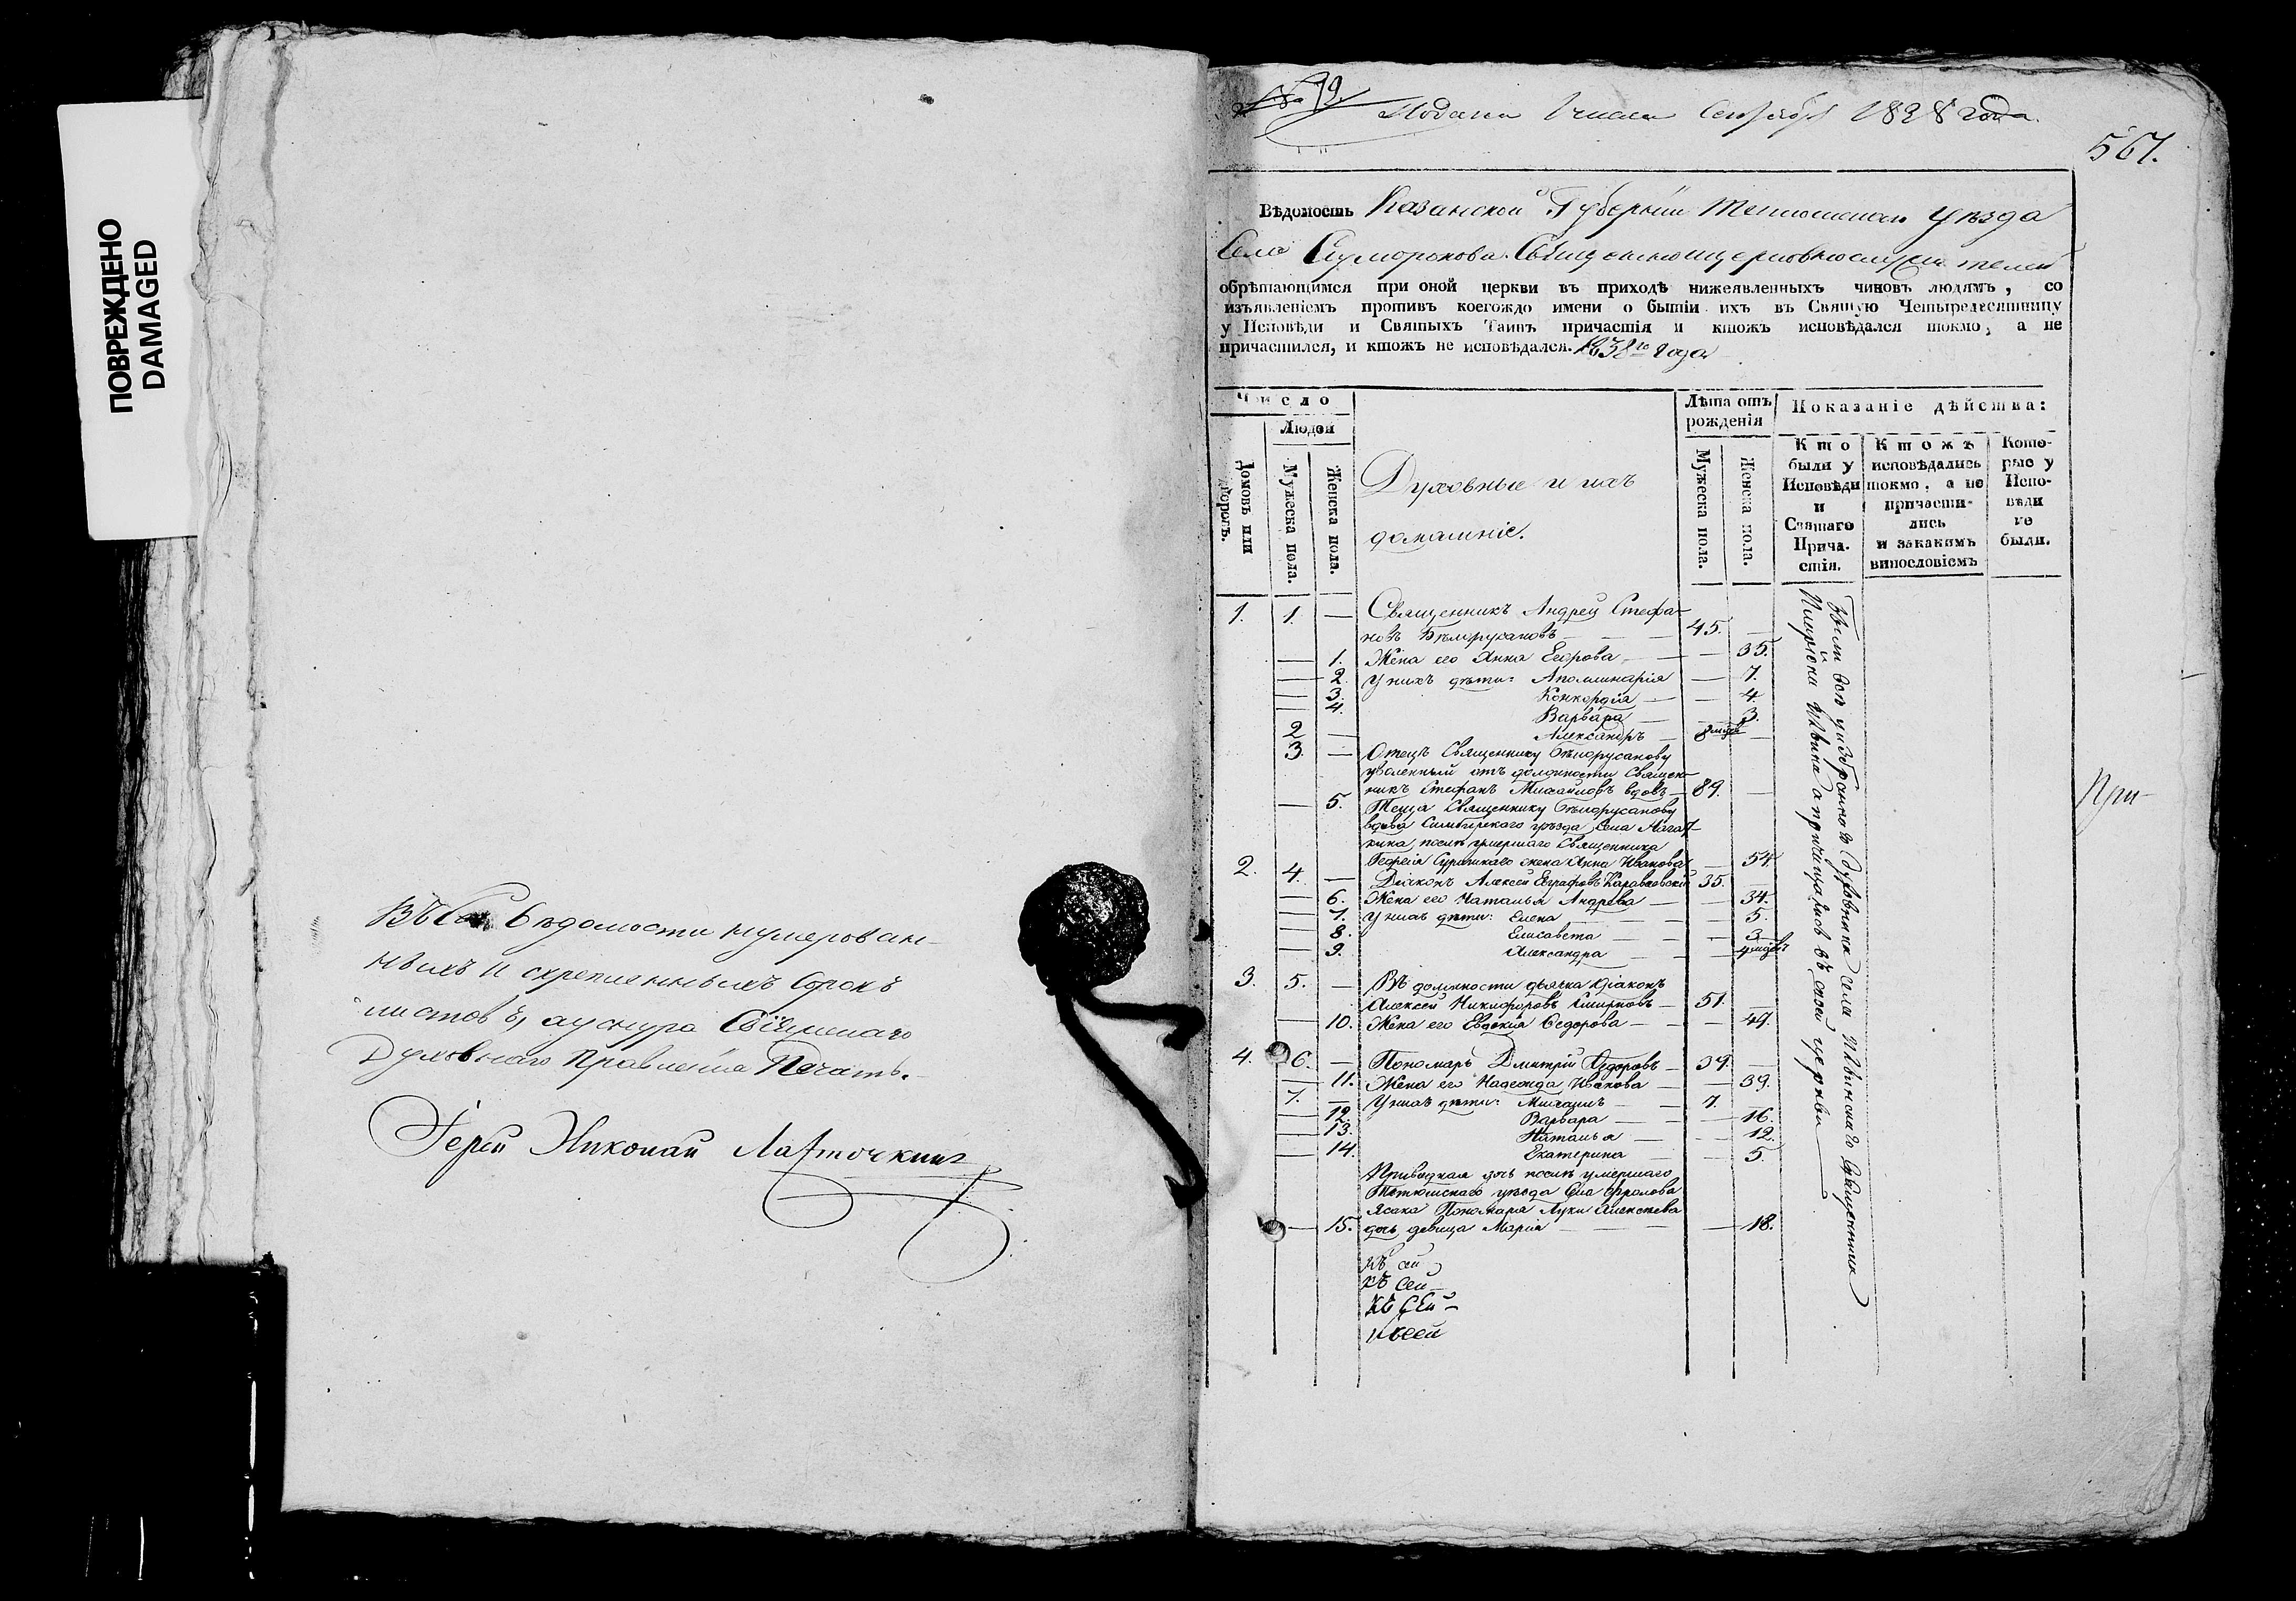 ПОВРЕЖДЕНО
DAMAGED
Вѣ сей вѣдомости нумерован-
ныхъ и скрепленныхъ сорокъ
листовъ, а у снура
Духовнаго Правленія Печать.
Іерей Николай Ласточкинъ
№ 92.
Подана 1 числа Сентября 1838 года.
567.
Вѣдомость Казанской Губерніи Тетюшскаго уѣзда
Села Суморокова Священноцерковнослужителей
обрѣтающимся при оной церкви въ приходѣ нижеявленныхъ чиновъ людямъ, со
изъявленіемъ противъ коегождо имени о бытіи ихъ въ Святую Четыредесятницу
у Исповѣди и Святыхъ Таинъ причастія и ктожъ исповѣдался токмо, а не
причастился, и ктожъ не исповѣдался. 1838го года
Число
Людей
Домовъ или дворовъ.
Мужеска пола.
Женска пола.
Духовные и ихъ
домашніе.
Лѣта отъ
рожденія
Мужеска пола.
Женска пола.
Показаніе дѣйства:
Кто
были у
Исповѣди
и
Святаго
Прича-
стія.
Ктожъ
исповѣдались
токмо, а не
причасти-
лись
и закакимъ
винословіемъ
Кото-
рые у
Испо-
вѣди
не
были.
1. 1. — Священникъ Андрей Стефа-
новъ Бѣлорусановъ — 45. —
— 1. Жена его Анна Егорова — — 35.
— 2. У нихъ дѣти: Аполлинарія — 7.
— 3. Конкордія — — 4.
— 4. Варвара — — 3.
2 — Александръ —
3. — Отецъ Священнику Бѣлорусанову
уволенный отъ должности Священ-
никъ Стефанъ Михайловъ вдовъ — 89. —
— 5. Теща Священнику Бѣлорусанову
вдова Симбирскаго уѣзда села
послѣ умершаго Священника
жена Анна Иванова — 54.
2. 4. — Діаконъ Алексей Евграфовъ 35.
— 6. Жена его Наталья Андреева — — 34.
— 7. У нихъ дѣти: Елена — — 5.
— 8. Елисавета — — 3
— 9. Александра — —
3. 5. — Въ должности дьячка діаконъ
Алексей Никифоровъ Смирновъ — 51. —
— 10. Жена его Евдокія Ѳедорова — — 49.
4. 6. — Пономарь Дмитрій — 39. —
— 11. Жена его Надежда Иванова — — 39.
7. — У нихъ дѣти: Михаилъ — 7. —
— 12. Варвара — — 16.
— 13. Наталья — — 12.
— 14. Екатерина — — 5.
послѣ умершаго
Тетюшскаго уѣзда села Фролова
Пономаря Луки Алексѣева
— 15. дочь девица Марія — — 18.
Къ сей
Къ сей
Къ сей
Къ сей
Были всѣ у избраннаго духовника села Ивинскаго Священника
Ивина а причащались въ своей церкви
При-